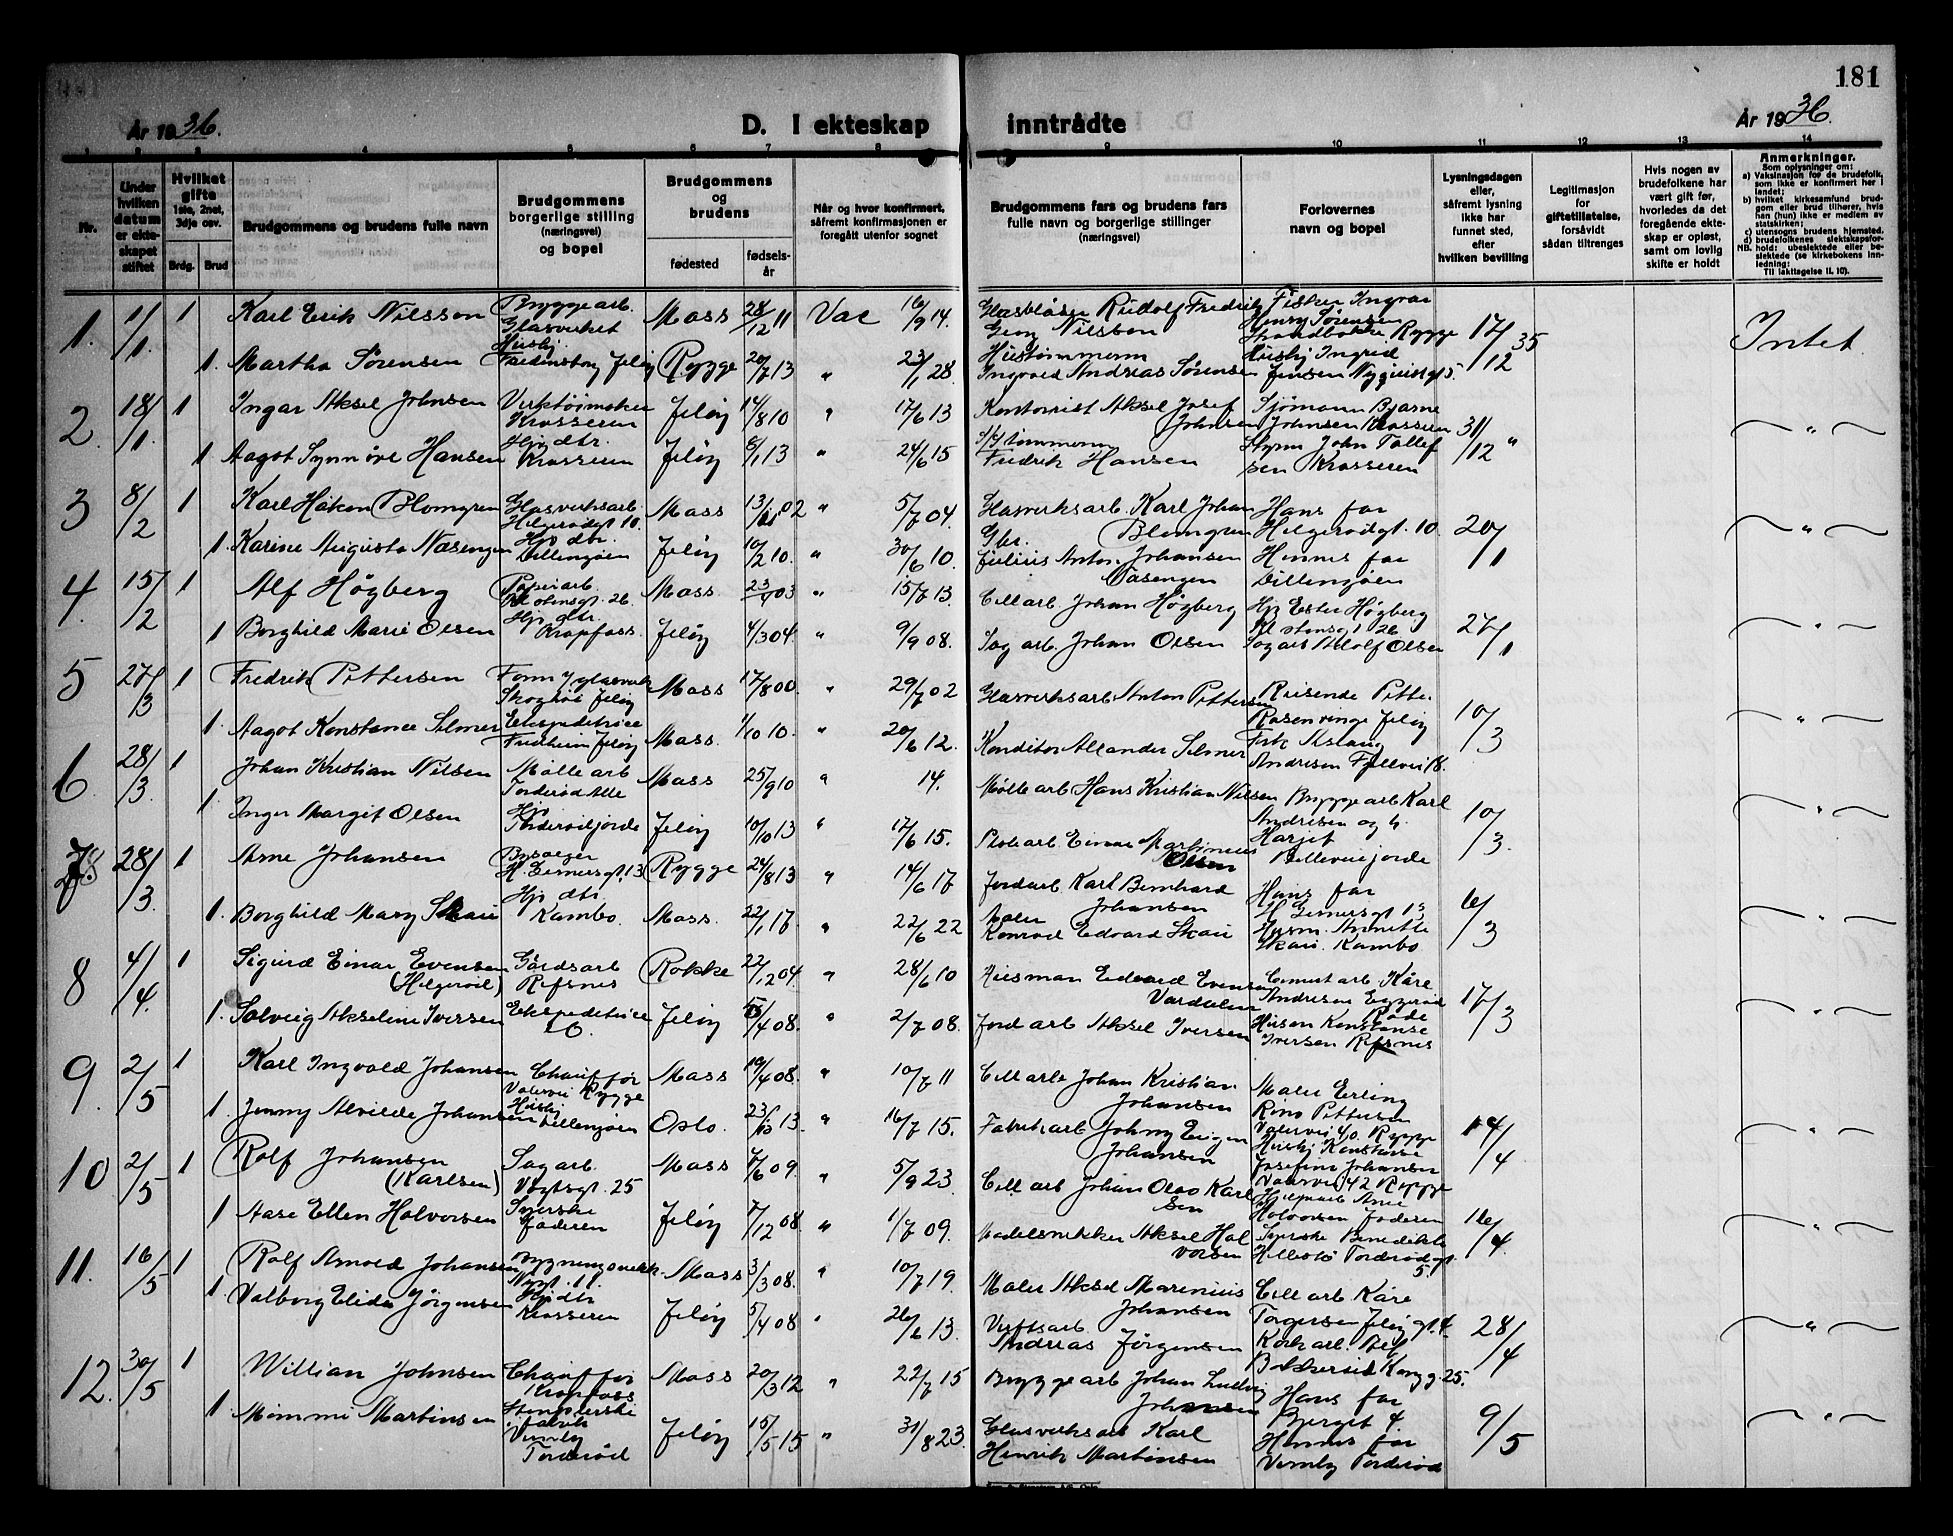 181
År 1936.
D. I ekteskap inntrådte
År 1936.
1 2 3 4 5 6 7 8 9 10 11 12 13 14
Nr.
Under hvilken datum er ekteskapet stiftet
Hvilket gifte 1ste, 2net, 3dje osv.
Brdg. Brud
Brudgommens og brudens fulle navn
Brudgommens borgerlige stilling (næringsvei) og bopel
Brudgommens og brudens
fødested
fødselsår
Når og hvor konfirmert, såfremt konfirmasjonen er foregått utenfor sognet
Brudgommens fars og brudens fars fulle navn og borgerlige stillinger (næringsvei)
Forlovernes navn og bopel
Lysningsdagen eller, såfremt lysning ikke har funnet sted, efter hvilken bevilling
Legitimasjon for giftetillatelse, forsåvidt sådan tiltrenges
Hvis nogen av brudefolkene har vært gift før, hvorledes da det foregående ekteskap er opløst, samt om lovlig skifte er holdt
Anmerkninger.
Som oplysninger om:
a) Vaksinasjon for de brudefolk, som ikke er konfirmert her i landet;
b) hvilket kirkesamfund brudgom eller brud tilhører, hvis han (hun) ikke er medlem av statskirken;
c) utensogns brudens hjemsted.
d) brudefolkenes slektskapsforhold: ubeslektede eller beslektede (se kirkebokens innledning:
NB.
Til iakttagelse II. 10).
1. 1/1 1 Karl Erik Nilsson Bryggearb. Glasverket Moss 28/12 11 Vac 16/9 14. Glasblåser Rudolf Fredrik Georg Nilsson Fisker Ingvar Henry Sørensen Rygge 17/12 35 Intet
1. Martha Sørensen Husbj. Jeløy Rygge 20/7 13 " 23/1 28. Hustømmerm Ingvald Andreas Sørensen Husbj Ingrid Jensen
2. 18/1. 1 Ingar Aksel Johnsen Verktøimaker Krosseren Jeløy 14/8 10 " 17/6 13 Kontorist Aksel Josef Johnsen Sjømann Bjarne Johnsen Krosseren 31/12 " "
1 Aagot Synnøve Hansen Hjp dtr. Krosseren Jeløy 8/1 13 " 24/6 15 Fredrik Hansen Styrm John Tollefsen Krosseren
3 8/2 1 Karl Håkon Blomgren Glasverksarb. Helgerødgt 10. Moss 13/11 02 " 5/7 04. Glasverksarb. Karl Johan Blomgren Hans far Helgerødgt. 10. 20/1 "
1. Karine Augusta Næsengen Hjp dtr. Dillengøen Jeløy 10/2 10. " 30/6 10. Gbr. Julius Anton Johansen Hennes far Dillengøen
4. 15/2 1 Alf Høgberg Papirarb Moss. 23/9 03 " 15/7 13. Cellarb Johan Høgberg Hjp Ester Høgberg 27/1 "
1 Borghild Marie Olsen Hjp dtr. Krapfoss. Jeløy 4/3 04 " 9/9 08. Sag arb. Johan Olsen Sagarb Adolf Olsen
5 27/3 1 Fredrik Pettersen Skoglid Jeløy Moss 17/8 00. " 29/7 02 Glasverksarb Anton Pettersen Reisende Rosenvinge Jeløy 10/3 "
1. Aagot Konstance Selmer Ekspeditrice Fredheim Jeløy Moss. 1/10 10. " 20/6 12. Konditor Alexander Selmer Frk Aslaug Andresen Fjellvei 18.
6. 28/3. 1 Johan Kristian Nilsen Møllearb Torderød Alle Moss 25/9 10 " 14. Møllearb Hans Kristian Nilsen Bryggearb Karl Andresen og h. 10/3. "
1. Inger Margit Olsen Hjp Jeløy 10/10 13 " 17/6 15. Einar Martinius Olsen Harjet Bellevuejorde
7 28/3. 1 Arne Johansen H. Gernersgt. 13 Rygge 24/8 13 " 14/6 17 Jordarb Karl Bernhard Johansen Hans far H Gernersgt 13 6/3 "
1. Borghild Mary Skau Hjp dtr Kambo. Moss. 22/1 17. " 22/6 22 Maler Konrad Edvard Skau Husm. Annette Skau. Kambo
8 4/4. 1 Sigurd Einar Evensen (Helgerød) Gårdsarb Refsnes Rokke 22/12 04 " 28/6 10 Husman Edvard Evensen Vardalen Cementarb Kåre Andresen Eggerød Råde 17/3 "
1. Solveig Akseline Iversen Ekspeditrice Jeløy 5/4 08. " 2/7 08. Jordarb Aksel Iversen Husm Konstanse Iversen Refsnes
9. 2/5 1 Karl Ingvald Johansen Chauffør Rygge Moss 19/4 08. " 10/7 11 Cellarb Johan Kristian Johansen Maler Erling Rino Pettersen Rygge 14/4 "
1. Jenny Alvilde Johansen Husbj Dillengøen Oslo. 23/10 13. " 16/7 15. Fabrikarb Johny Johansen Husbj Konstanse Josefine Johansen 42 Rygge
10 2/5 1 Rolf Johansen (Karlsen) Sagarb. Vogtsgt. 25 Moss 7/6 09. " 5/9 23. Cellarb Johan Olav Karlsen Arne Halvorsen Foderen 16/4. "
1 Aase Ellen Halvorsen Syerske Foderen Jeløy 7/12 08. " 1/7 09. Modelsnekker Aksel Halvorsen Syerske Benedikte Torderødgt 5.
11. 16/5 1 Rolf Arnold Johansen Moss 3/3 08. " 10/7 19. Maler Aksel Marenius Johansen Cellarb Kåre Torgersen Jeløygt. 4. 28/4 "
1. Valborg Elida Jørgensen Hjp dtr Krosseren Jeløy 5/4 08 " 26/6 13. Verftsarb Andreas Jørgensen
12. 30/5 1 William Johnsen Chauffør Krapfoss Moss 20/3 12 " 22/7 15 Bryggearb Johan Ludvig Johnsen Hans far Berget 4. 9/5 "
1. Mimmi Martinsen Vernby Torderød Jeløy 15/5 15 " 31/8 23. Glasverksarb Karl Henrik Martinsen Hennes far Vernby Torderød